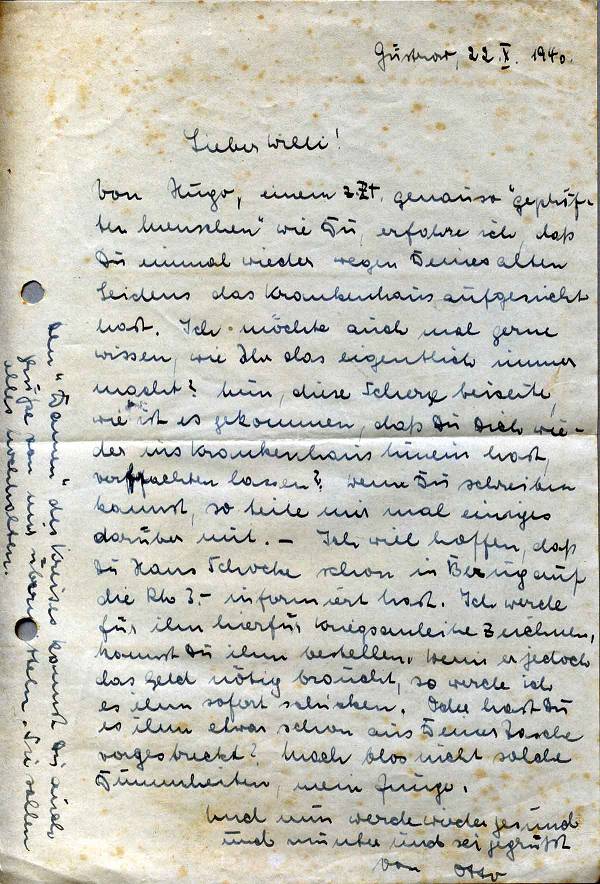 Güstrow, 22.X. 1940.
Lieber Willi!
Von Hugo, einem z.Zt. genauso "geprüf-
ten Menschen" wie Du, erfahre ich, daß
Du einmal wieder wegen Deines alten
Leidens das Krankenhaus aufgesucht
hast. Ich möchte auch mal gerne
wissen, wie Ihr das eigentlich immer
macht? Nun, diese Scherze beiseite,
wie ist es gekommen, daß Du Dich wie-
der ins Krankenhaus hinein hast,
verfrachten lassen? Wenn Du schreiben
kannst, so teile mir mal einiges
darüber mit. – Ich will hoffen, daß
Du Hans Schocke schon in Bezug auf
die Rm 3.– informiert hast. Ich werde
für ihn hierfür Kriegsanleihe zeichnen,
kannst Du ihm bestellen. Wenn er jedoch
das Geld nötig braucht, so werde ich
es ihm sofort schicken. Oder hast Du
es ihm etwa schon aus Deiner Tasche
vorgestreckt? Mach blos nicht solche
Dummheiten, mein Junge.
Und nun werde wieder gesund
und munter und sei gegrüßt
von Otto
Den "Damen" des Kreises kannst Du auch
Grüße von mir übermitteln. Sie sollen
alles hochhalten.